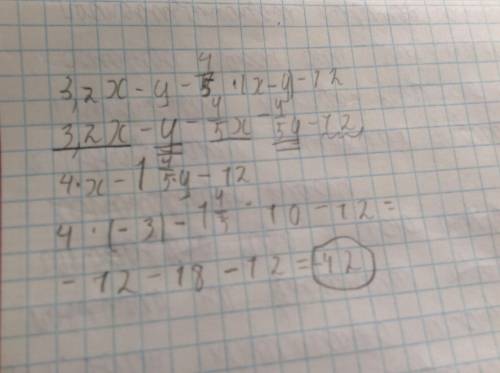 3,2x - y - 4/5 · (x - y) - 12
3,2x - y - 4/5x - 4/5y - 12
4·x - 1 4/5·y - 12
4 · (-3) - 1 4/5 · 10 - 12 =
- 12 - 18 - 12 = 42